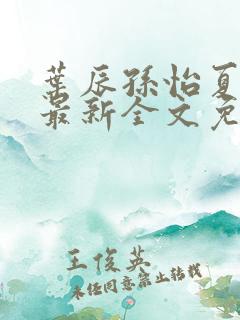 葉辰孫怡夏
最新全文免
王俊英
未经同意禁止转载